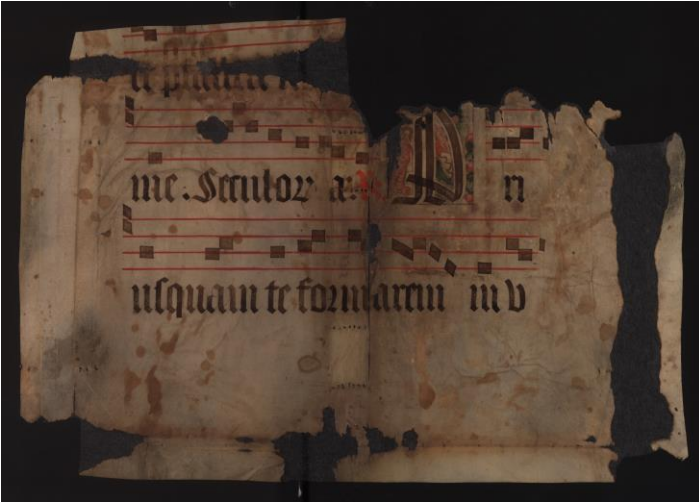 me. Seculor a. P ri
usquam te formarem in v